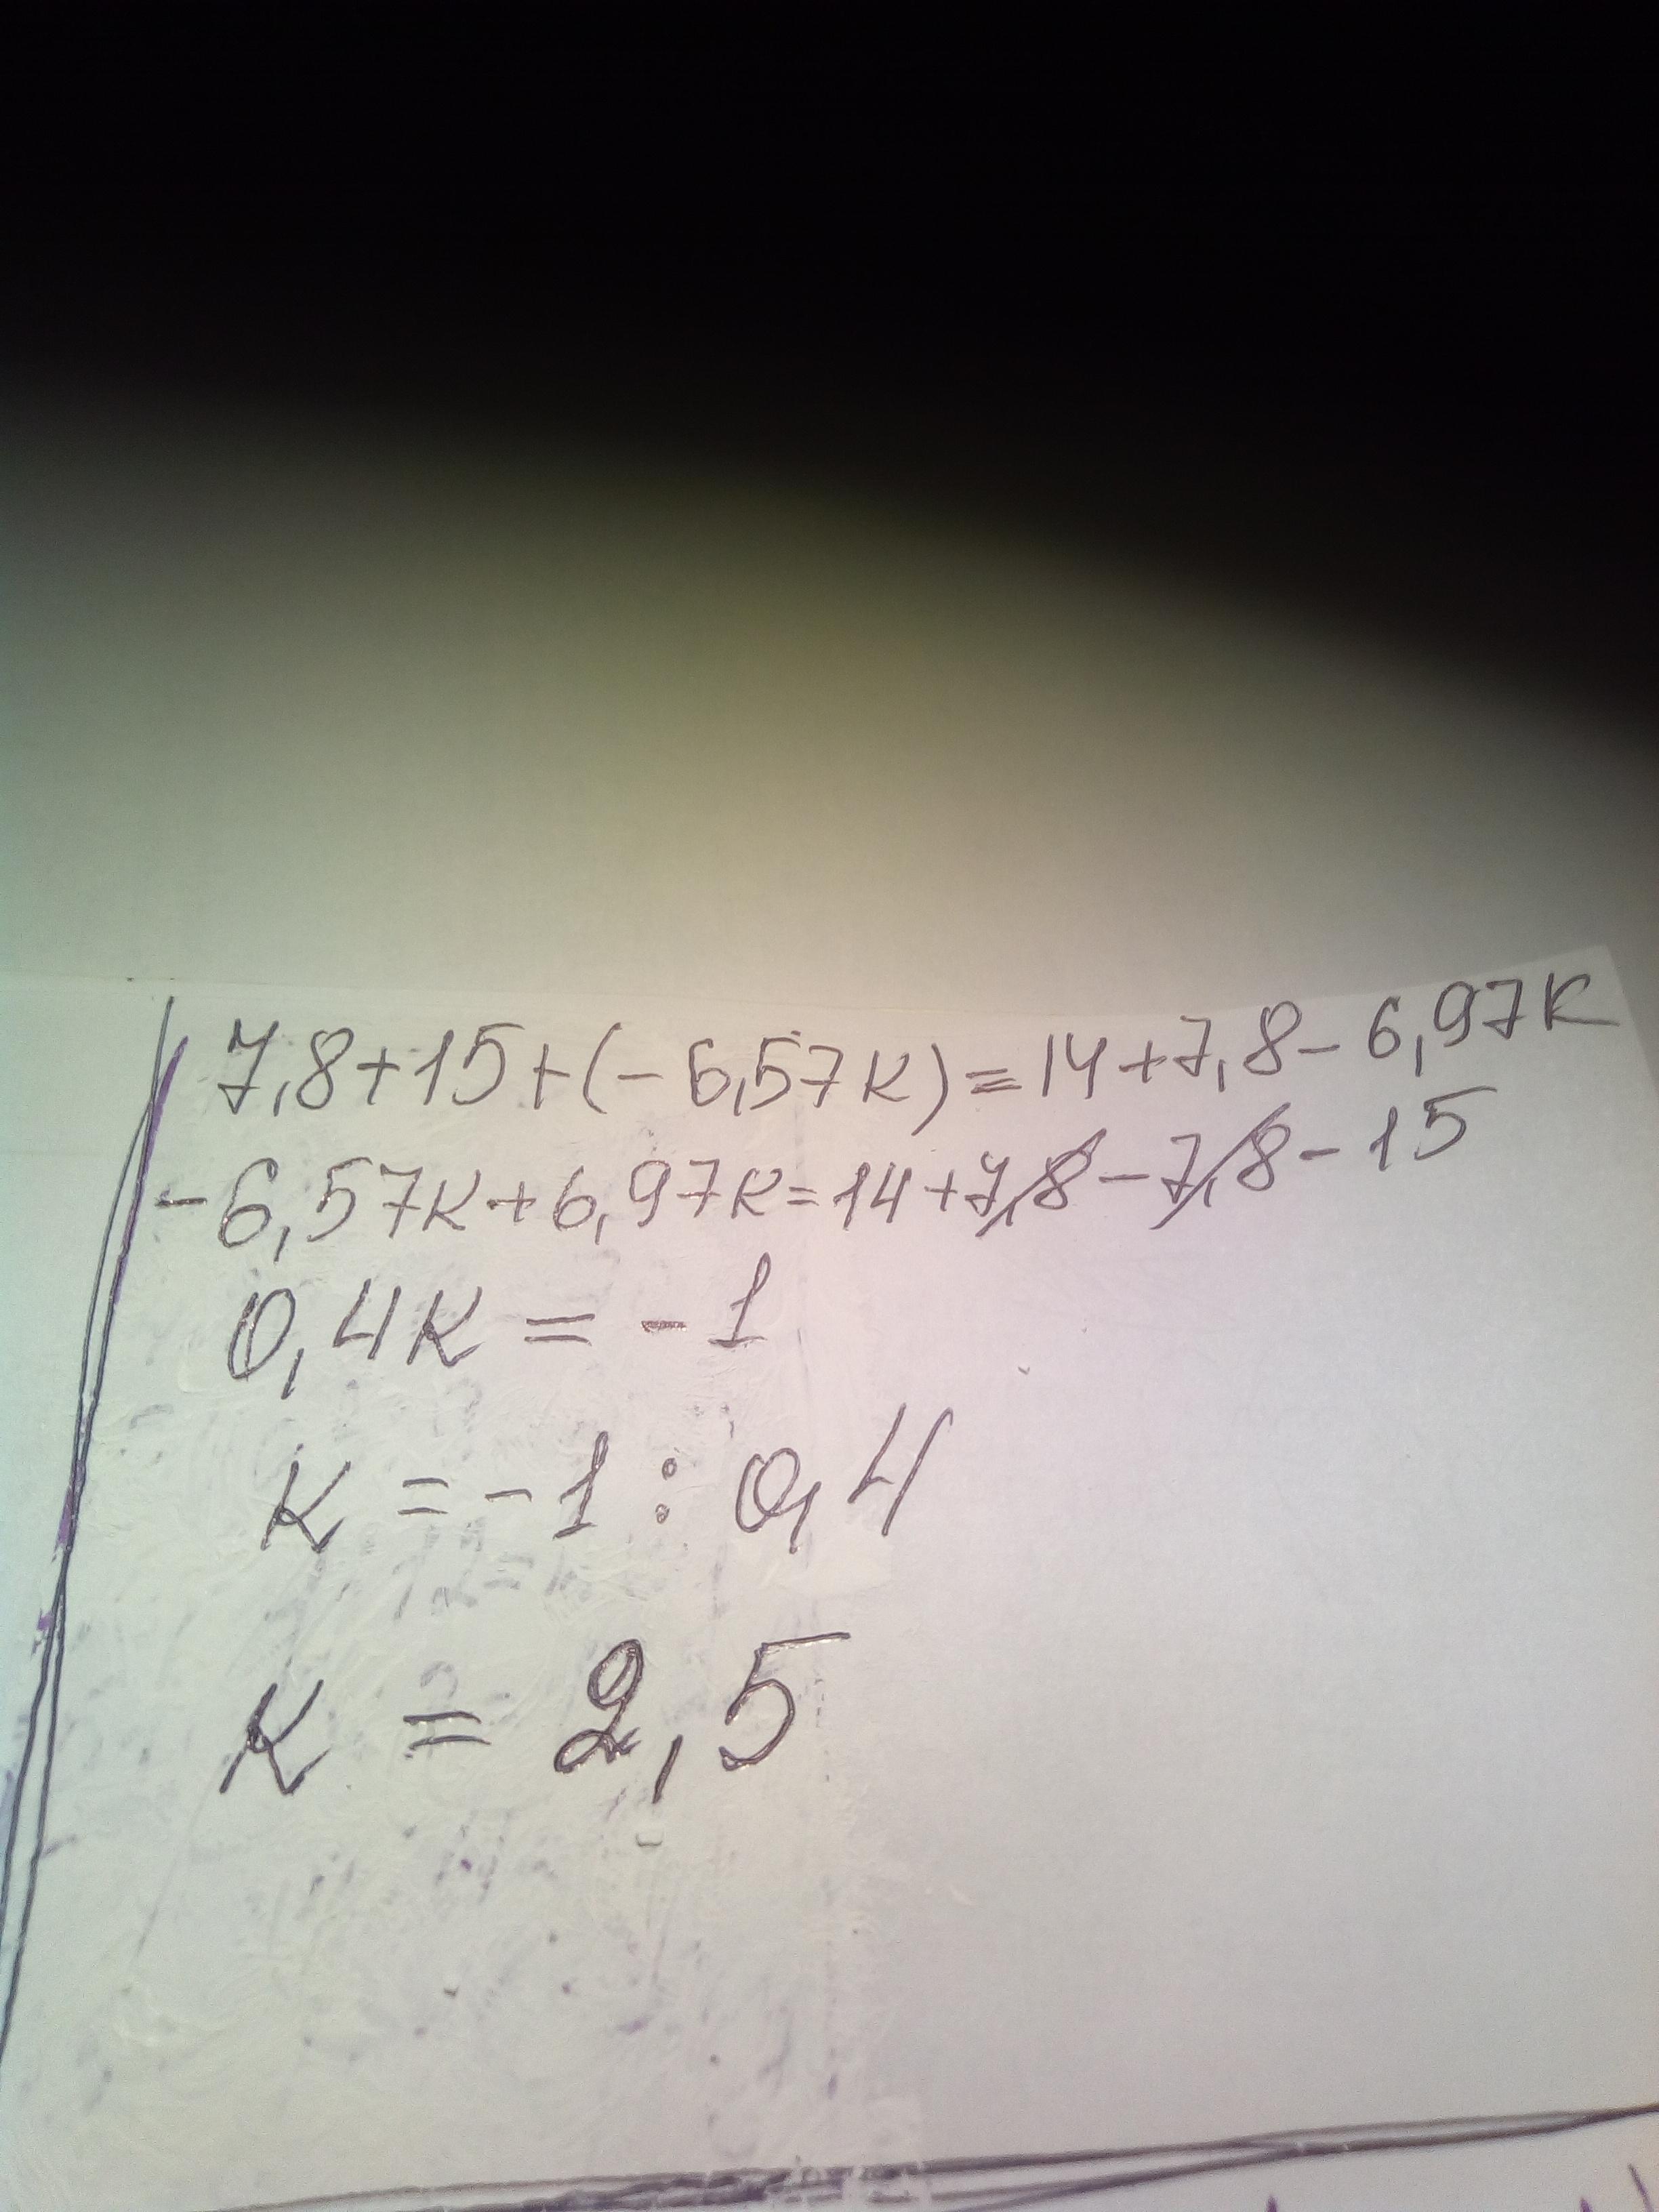 7,8+15+(-6,57к)=14+7,8-6,97к
-6,57к+6,97к=14+7,8-7,8-15
0,4к=-1
к=-1:0,4
к=2,5